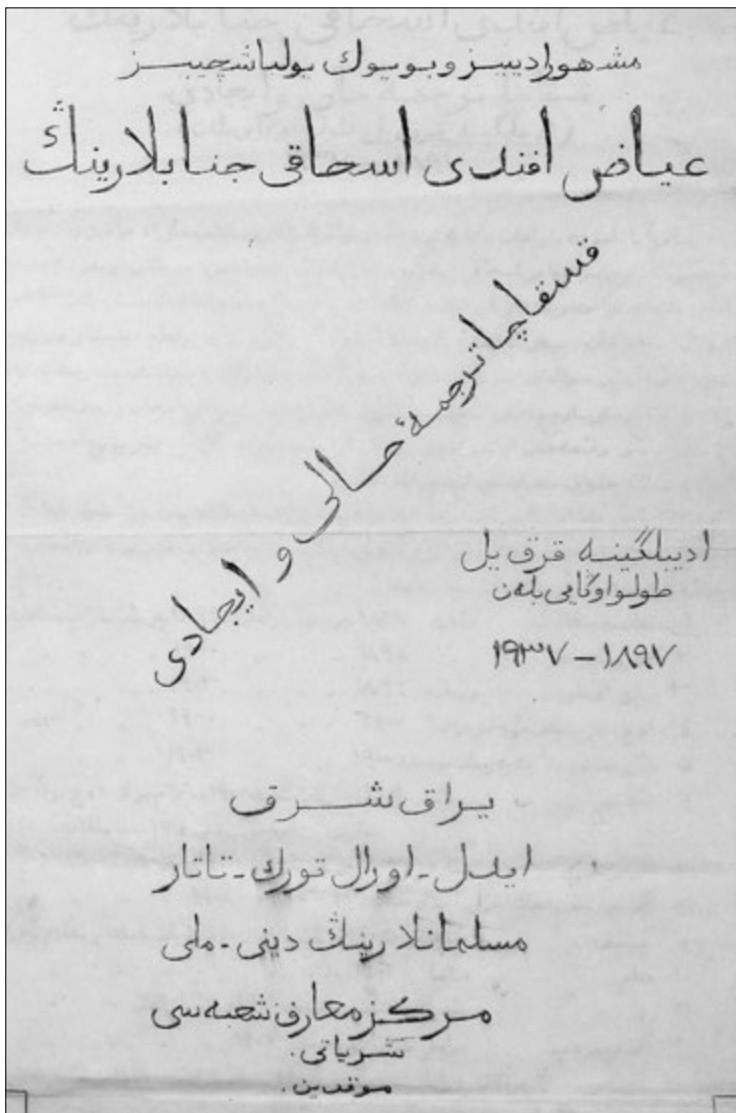 مشهور اديبىز و بويوك يولباشچيبىز
عياض افندى اسحاقى جنابلارينڭ
قسقاچا ترجمۀ حالى و ايجادى
اديبلگينه قرق يل
طولو اوڭايى بلەن
١٨٩٧ – ١٩٣٧
يراق شرق
ايدل - اورال تورك - تاتار
مسلمانلارينڭ دينى - ملى
مركز معارف شعبه سى
نشرياتى.
موقدين.